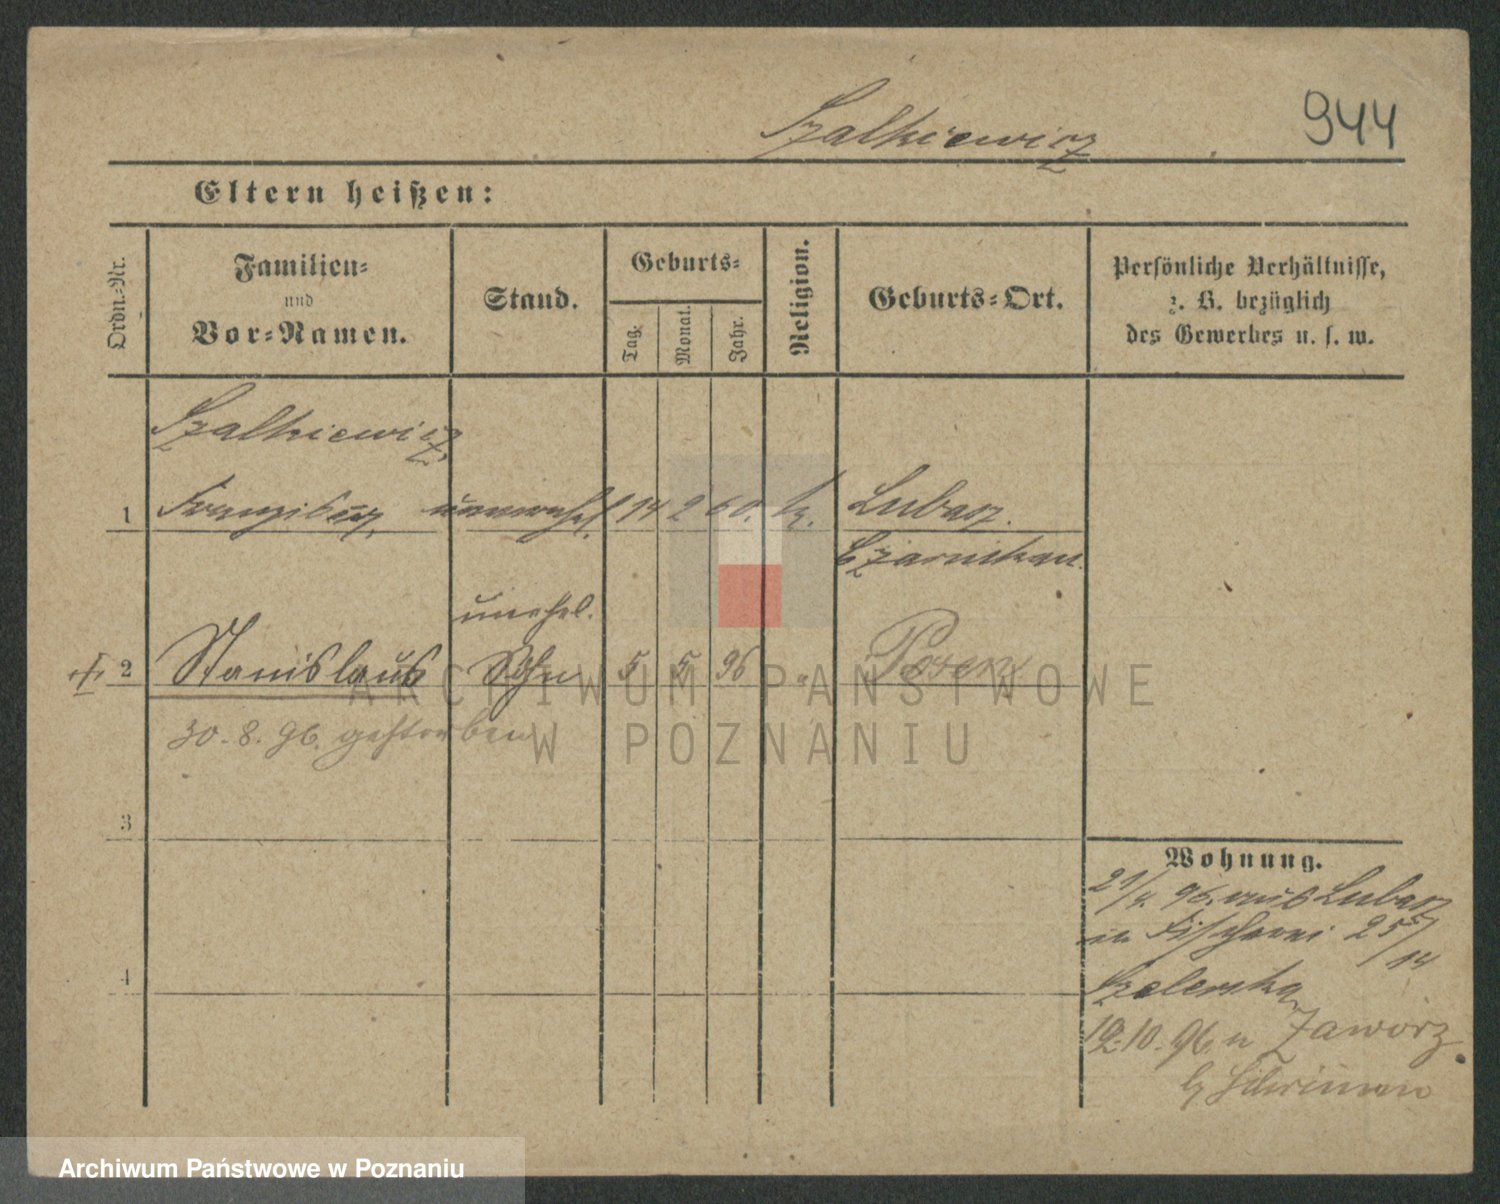 Szalkiewicz
944
Eltern heißen:
Ordn.-Nr.
Familien-
und
Vor-Namen.
Stand.
Geburts-
Tag.
Monat.
Jahr.
Religion.
Geburts-Ort.
Persönliche Verhältnisse,
z. B. bezüglich
des Gewerbes u. s. w.
Szalkiewicz
1 Franziska unverehel. 14 2 60. k. Lubasz.
Czarnikau.
unehel.
2 Stanislaus Sohn 5 5 96 Posen
30. 8. 96. gestorben
3
4
Wohnung.
21/4. 96. aus Lubasz
in Fischerei 25/14
12.10.96. n Jaworz
b/ Schrimm
ARCHIWUM PAŃSTWOWE
W POZNANIU
Archiwum Państwowe w Poznaniu